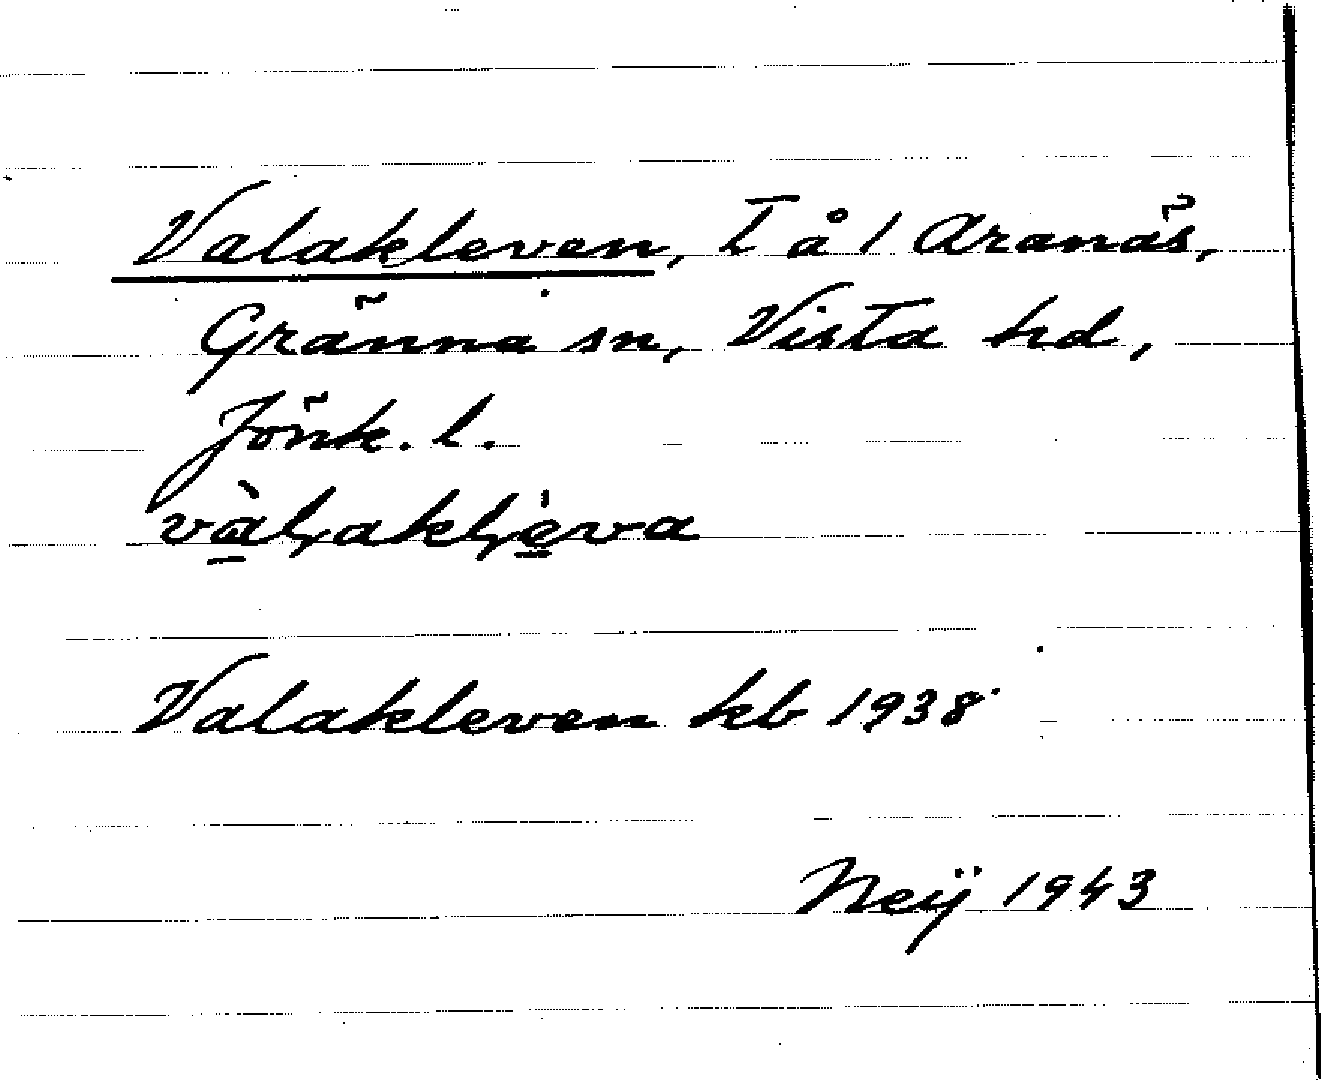 Valakleven, T å 1 Aranäs,
Gränna sn, Vista hd,
Jönk. l.
Valakleven kb 1938
Neij 1943